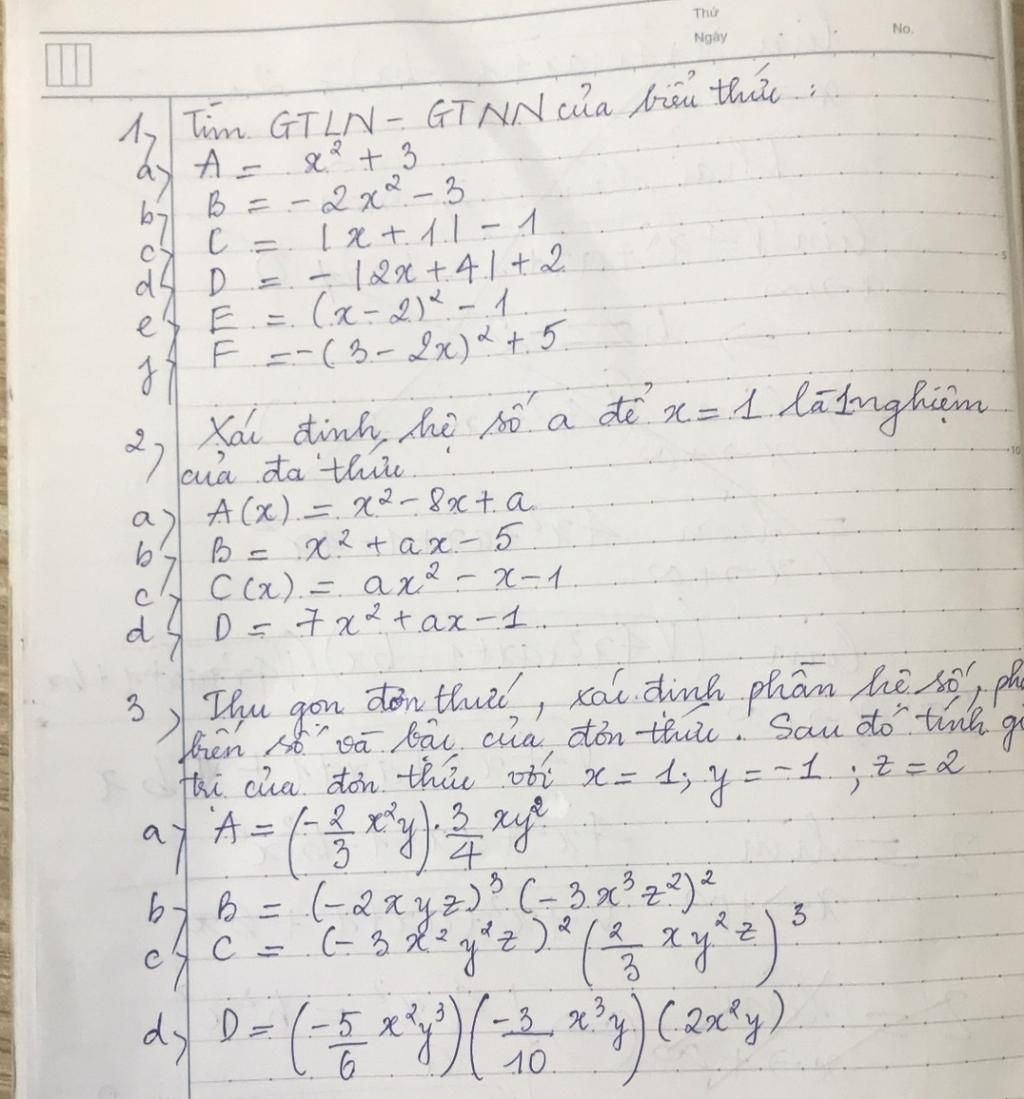 Thứ
Ngày
No.
1, Tìm GTLN - GTNN của biểu thức :
a, A = x² + 3
b, B = - 2x² - 3
c, C = |x + 1| - 1
d, D = - |2x + 4| + 2
e, E = (x - 2)² - 1
f, F = -(3 - 2x)² + 5
2, Xác định hệ số a để x = 1 là 1 nghiệm
của đa thức
a, A(x) = x² - 8x + a
b, B = x² + ax - 5
c, C(x) = ax² - x - 1
d, D = 7x² + ax - 1
3, Thu gọn đơn thức, xác định phần hệ số, ph
biến số và bậc của đơn thức. Sau đó tính gi
trị của đơn thức với x = 1; y = -1 ; z = 2
a, A = (-2/3 x²y) . 3/4 xy²
b, B = (-2xyz)³ (-3x³z²)²
c, C = (-3x²y²z)² (2/3 xy²z)³
d, D = (-5/6 x²y³) (-3/10 x³y) (2x²y)
5
10